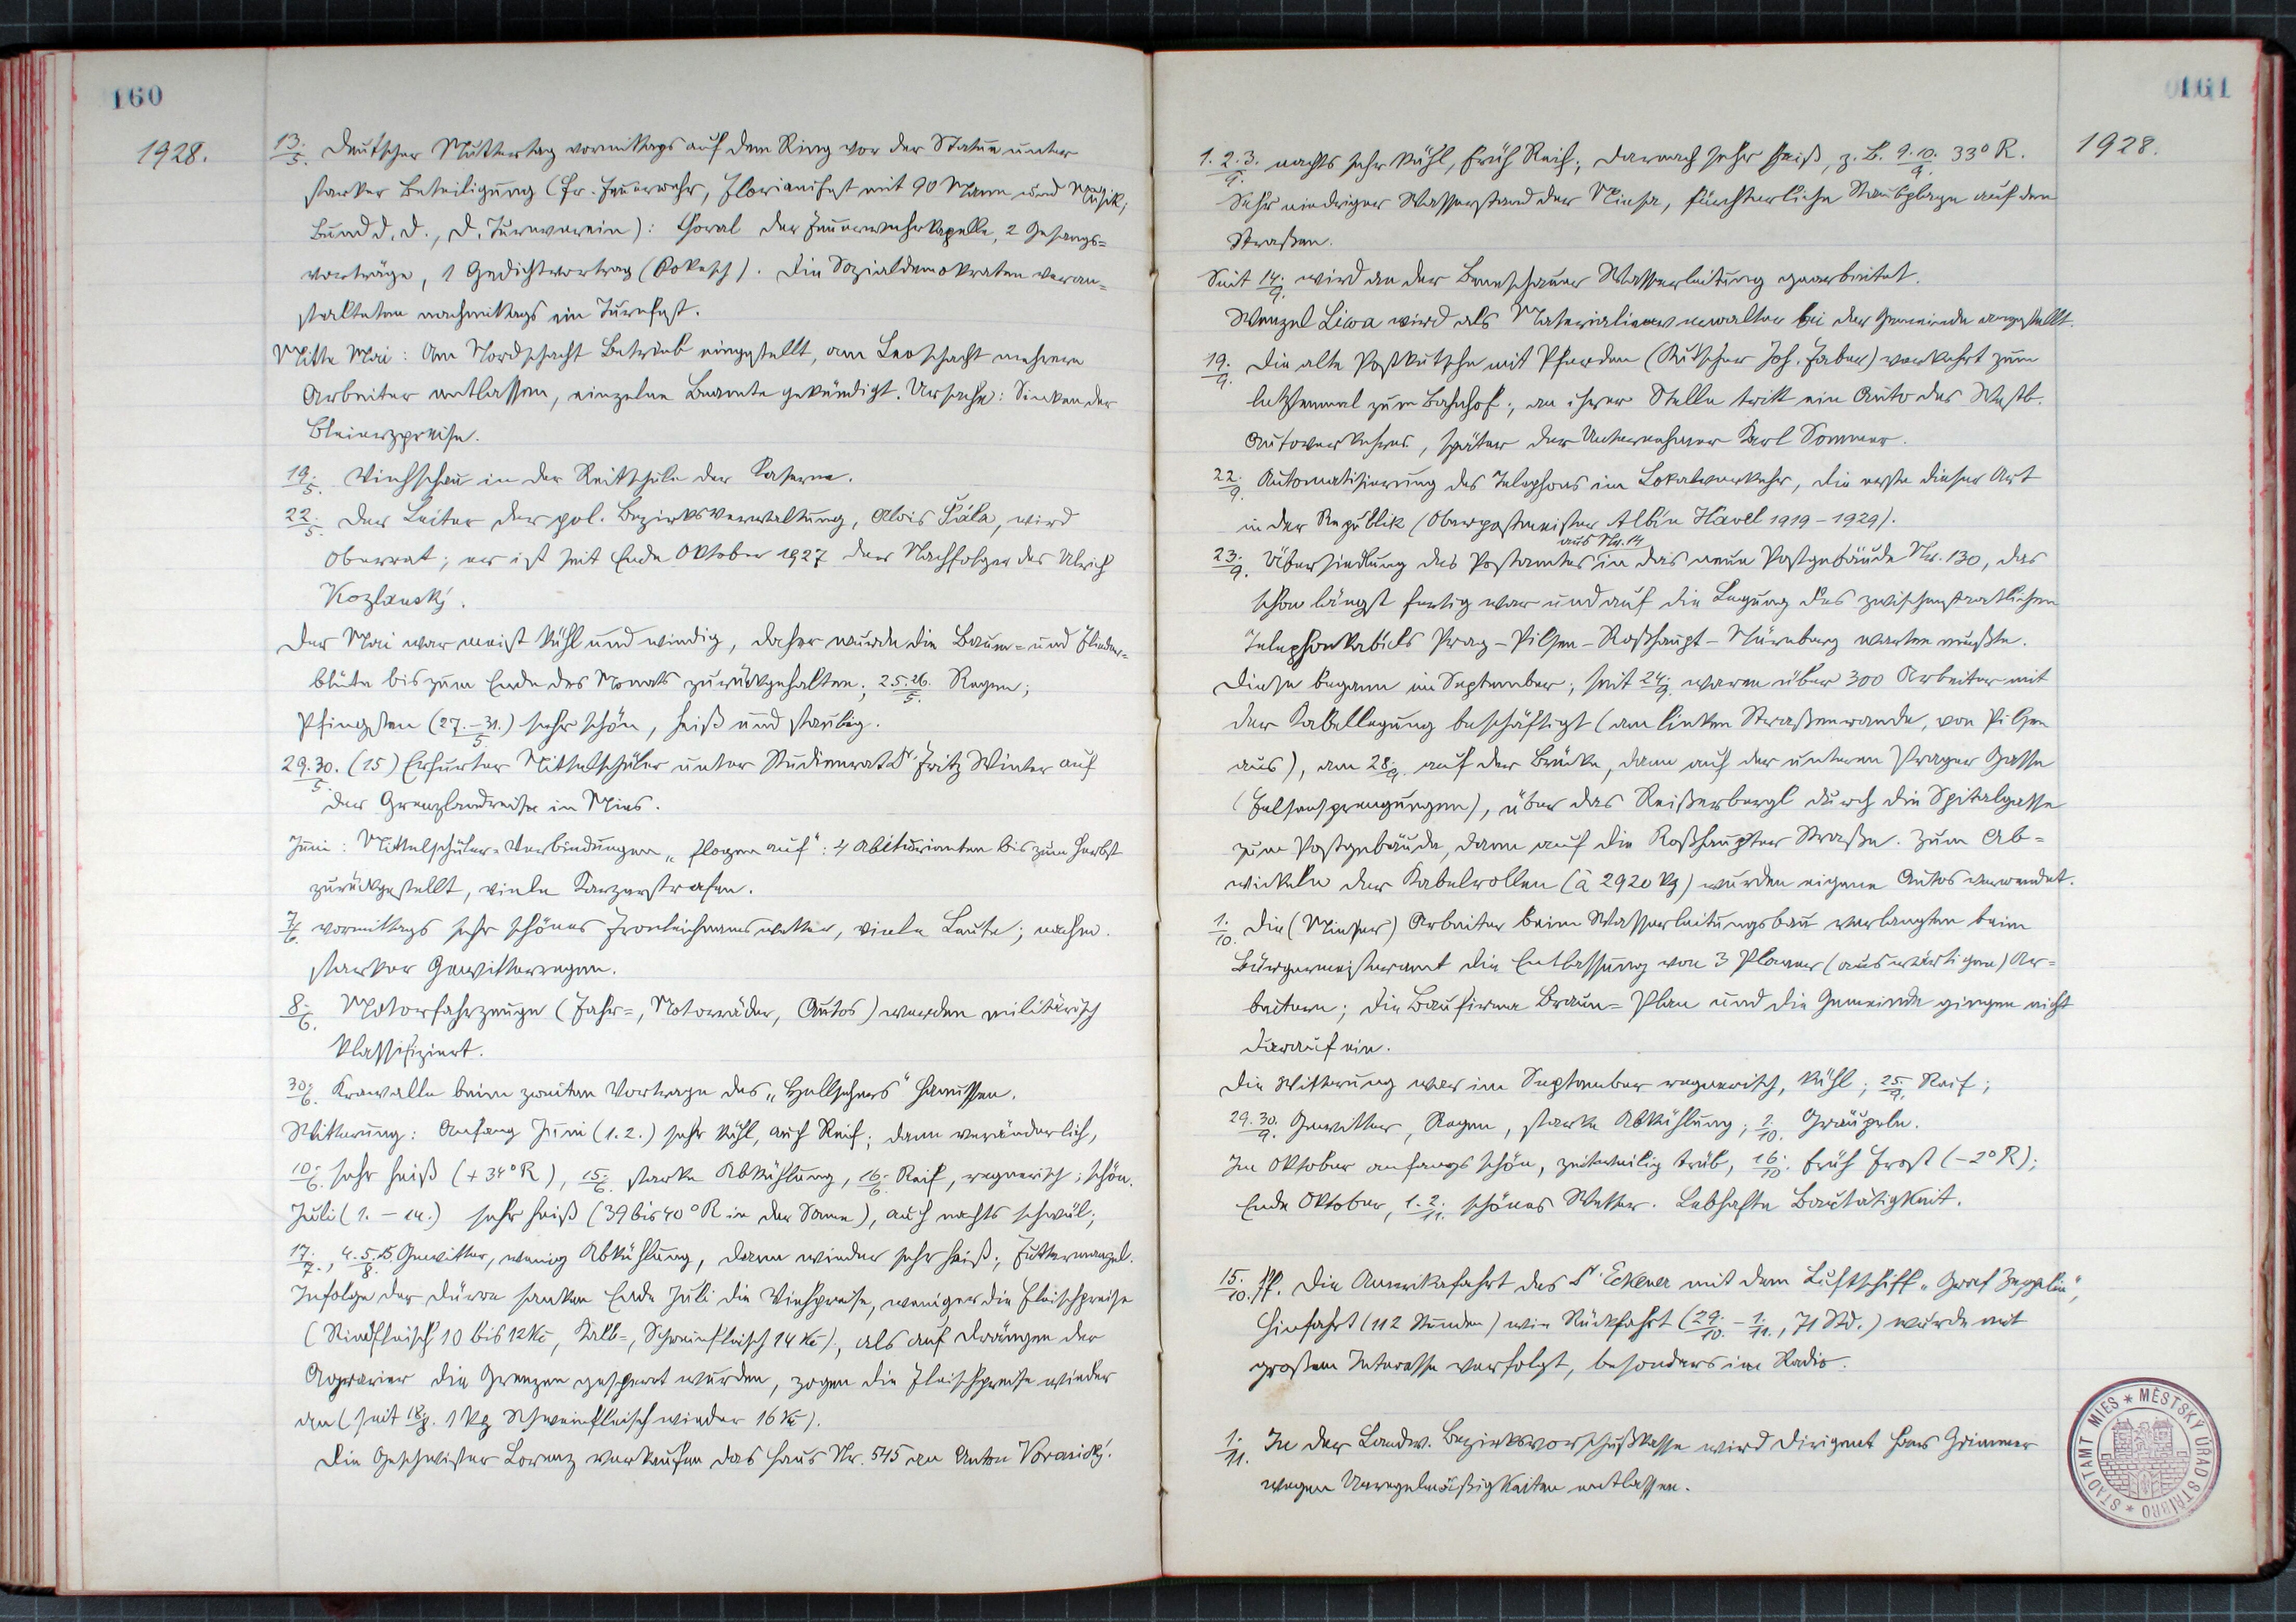 160
1928.
13./5. Deutscher Muttertag vormittags auf dem Ring vor der Statue unter
starker Beteiligung (Fr. Feuerwehr, Florianifest mit 90 Mann und Musik;
Bund d. D., D. Turnverein): Choral der Feuerwehrkapelle, 2 Gesangs-
vorträge, 1 Gedichtvortrag (Pokesch). Die Sozialdemokraten veran-
stalteten nachmittags ein Turnfest.
Mitte Mai: Am Nordschacht Betrieb eingestellt, am Leoschacht mehrere
Arbeiter entlassen, einzelne Beamte gekündigt. Ursache: Sinken der
Bleierzpreise.
19./5. Viehschau in der Reitschule der Kaserne.
22./5. Der Leiter der pol. Bezirksverwaltung, Alois Šála, wird
Oberrat; er ist seit Ende Oktober 1927 der Nachfolger des Ulrich
Kozlanský.
Der Mai war meist kühl und windig, daher wurde die Baum- und Flieder-
blüte bis zum Ende des Monats zurückgehalten; 25.26./5. Regen;
Pfingsten (27.–31./5.) sehr schön, heiß und staubig.
29.30./5. (15) Erfurter Mittelschüler unter Studienrat Dr. Fritz Winter auf
der Grenzlandreise in Mies.
Juni: Mittelschüler-Verbindungen „flogen auf": 4 Abiturienten bis zum Herbst
zurückgestellt, viele Karzerstrafen.
7./6. vormittags sehr schönes Fronleichnamswetter, viele Leute; nachm.
starker Gewitterregen.
8./6. Motorfahrzeuge (Fahr-, Motorräder, Autos) werden militärisch
klassifiziert.
30./6. Krawalle beim zweiten Vortrage des „Hellsehers" Hanussen.
Witterung: Anfang Juni (1.2.) sehr kühl, auch Reif; dann veränderlich,
10./6. sehr heiß (+34° R), 15./6. starke Abkühlung, 16./6. Reif, regnerisch; schön.
Juli (1.–14.) sehr heiß (39 bis 40° R in der Sonne), auch nachts schwül;
17./7., 4.5.15./8. Gewitter, wenig Abkühlung, dann wieder sehr heiß; Futtermangel.
Infolge der Dürre sanken Ende Juli die Viehpreise, weniger die Fleischpreise
(Rindfleisch 10 bis 12 Kč, Kalb-, Schweinfleisch 14 Kč), als auf Drängen der
Agrarier die Grenzen gesperrt wurden, zogen die Fleischpreise wieder
an (seit 18./8. 1 kg Schweinfleisch wieder 16 Kč).
Die Geschwister Lorenz verkaufen das Haus Nr. 545 an Anton Voraický.
161
1928.
1.2.3./9. nachts sehr kühl, früh Reif; darnach sehr heiß, z. B. 9.10./9. 33° R.
Sehr niedriger Wasserstand der Miesa, fürchterliche Staubplage auf den
Straßen.
Seit 14./9. wird an der Beneschauer Wasserleitung gearbeitet.
Wenzel Liwa wird als Materialienverwalter bei der Gemeinde angestellt.
19./9. Die alte Postkutsche mit Pferden (Kutscher Joh. Faber) verkehrt zum
letztenmal zum Bahnhof; an ihrer Stelle tritt ein Auto des Westb.
Autoverkehres, später der Unternehmer Karl Sommer.
22./9. Automatisierung des Telephons im Lokalverkehr, die erste dieser Art
in der Republik (Oberpostmeister Albin Havel 1919–1929).
aus Nr. 14
23./9. Übersiedlung des Postamtes in das neue Postgebäude Nr. 130, das
schon längst fertig war und auf die Legung des zwischenstaatlichen
Telephonkabels Prag–Pilsen–Roßhaupt–Nürnberg warten mußte.
Diese begann im September; seit 24./9. waren über 300 Arbeiter mit
der Kabellegung beschäftigt (am linken Straßenrande, von Pilsen
aus), am 28./9. auf der Brücke, dann auf der unteren Prager Gasse
(Felsensprengungen), über das Reißerbergl durch die Spitalgasse
zum Postgebäude, dann auf die Roßhaupter Straße. Zum Ab-
wickeln der Kabelrollen (à 2920 kg) wurden eigene Autos verwendet.
1./10. Die (Mieser) Arbeiter beim Wasserleitungsbau verlangten beim
Bürgermeisteramt die Entlassung von 3 Planer (auswärtigen) Ar-
beitern; die Baufirma Braun-Plan und die Gemeinde gingen nicht
darauf ein.
Die Witterung war im September regnerisch, kühl; 25./9. Reif;
29.30./9. Gewitter, Regen, starke Abkühlung; 1./10. Graupeln.
Im Oktober anfangs schön, zeitweilig trüb, 16./10. früh Frost (–2° R);
Ende Oktober, 1.2./11. schönes Wetter. Lebhafte Bautätigkeit.
15./10. ff. Die Amerikafahrt des Dr. Eckener mit dem Luftschiff „Graf Zeppelin",
Hinfahrt (112 Stunden) wie Rückfahrt (29./10.–1./11., 71 Std.) wurde mit
großem Interesse verfolgt, besonders im Radio.
1./11. In der Landw. Bezirksvorschußkasse wird Dirigent Hans Grimmer
wegen Unregelmäßigkeiten entlassen.
STADTAMT MIES * MĚSTSKÝ ÚŘAD STŘÍBRO *